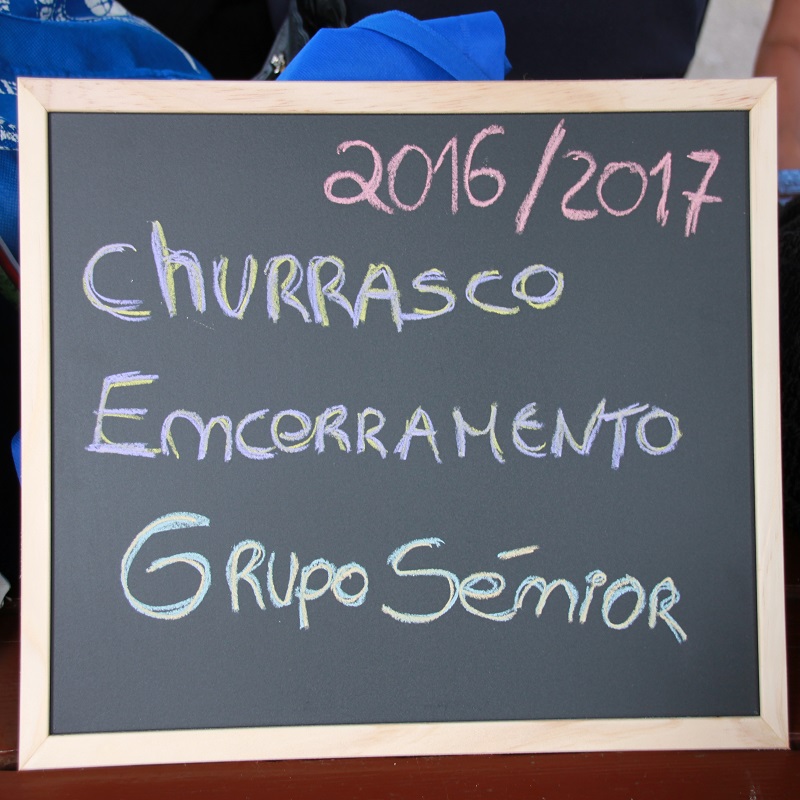 2016/2017
Churrasco
Emcerramento
Grupo Sémior